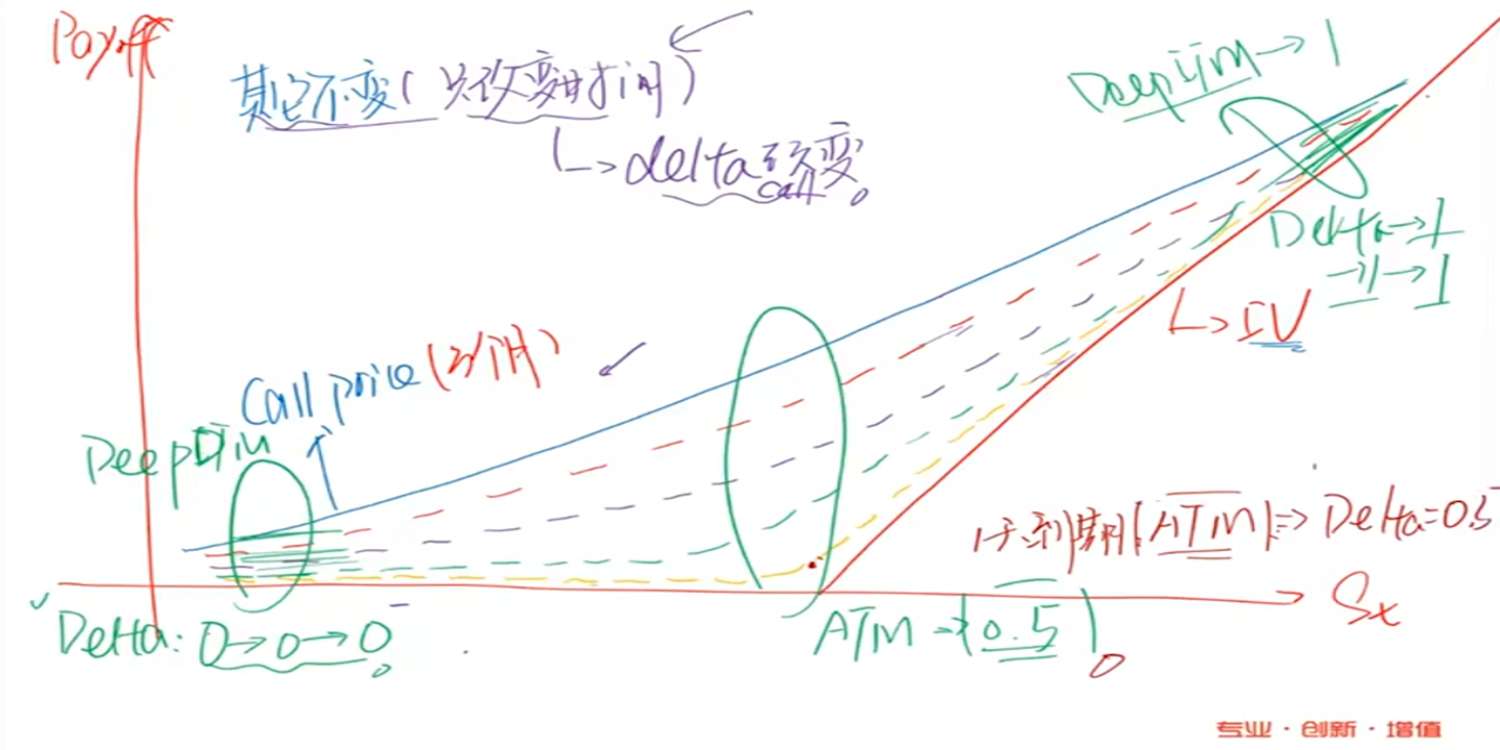 Payoff
其它不变(只改变时间)
↳ delta call 改变。
Deep ITM → 1
Delta → 1
→ 1 → 1
↳ IV
Call price (3个月)
Deep OTM
1天到期(ATM) ⇒ Delta=0.5
Sx
Delta: 0→0→0。
ATM → (0.5)。
专业·创新·增值